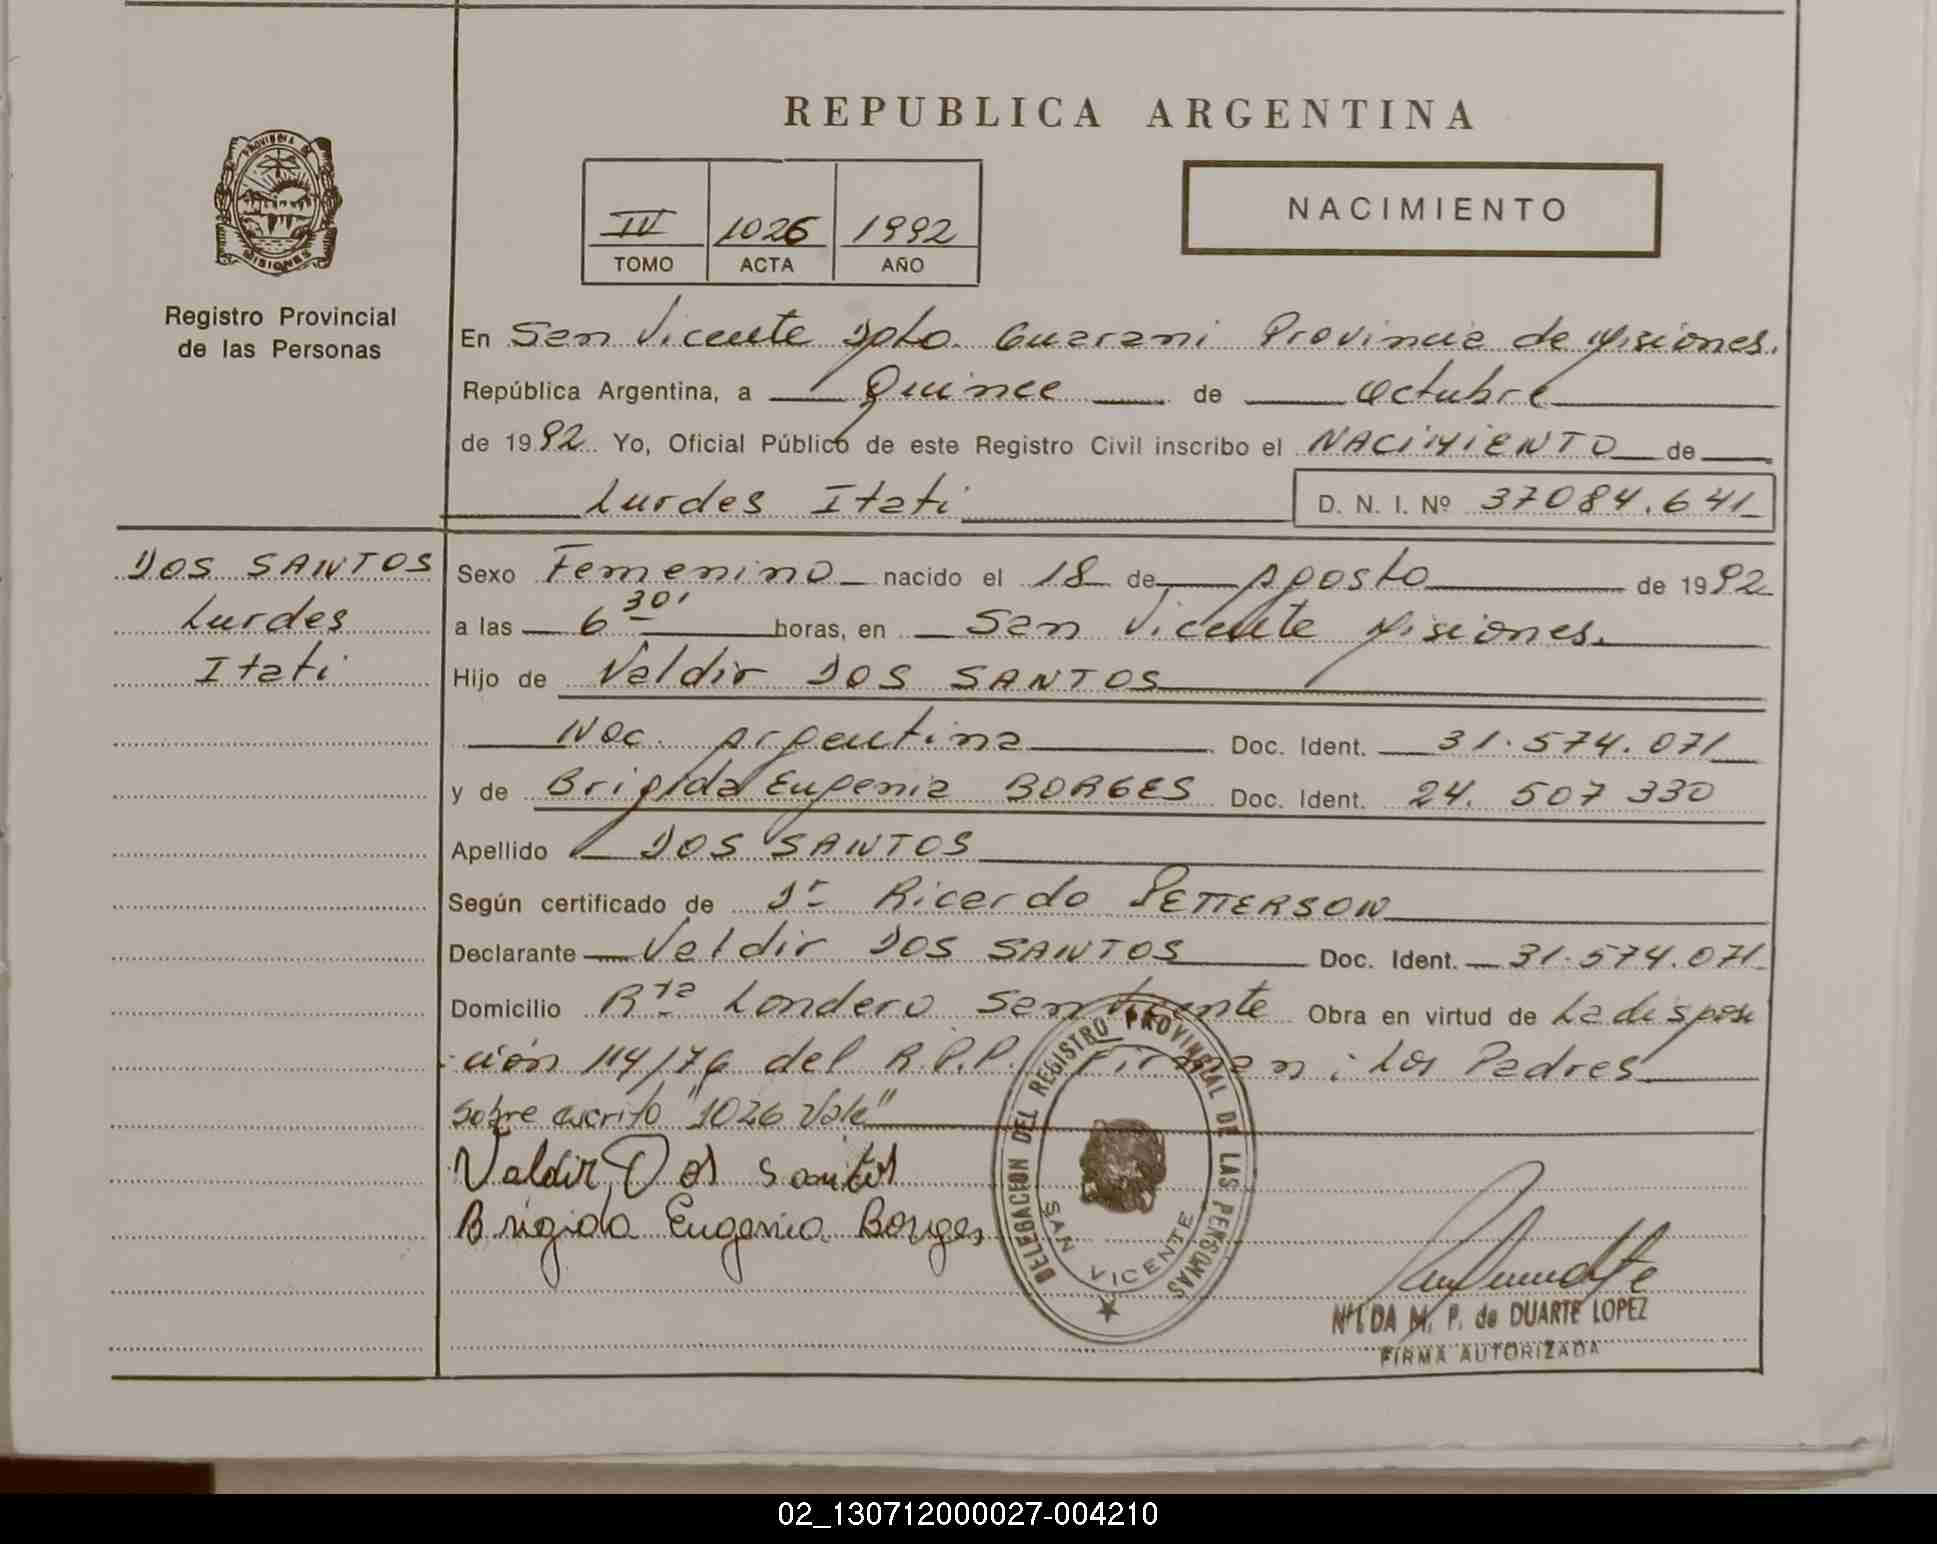 REPUBLICA ARGENTINA
PROVINCIA DE
MISIONES
Registro Provincial
de las Personas
IV 1026 1992
TOMO ACTA AÑO
NACIMIENTO
En San Vicente Dpto. Guarani Provincia de Misiones.
República Argentina, a Quince de Octubre
de 1992 Yo, Oficial Público de este Registro Civil inscribo el NACIMIENTO de
Lurdes Itati D. N. I. Nº 37084.641
DOS SANTOS
Lurdes
Itati
Sexo Femenino nacido el 18 de Agosto de 1992
a las 6 30' horas, en San Vicente Misiones.
Hijo de Valdir DOS SANTOS
Nac. Argentina Doc. Ident. 31.574.071
y de Brigida Eugenia BORGES Doc. Ident. 24. 507 330
Apellido DOS SANTOS
Según certificado de Dr Ricardo PETTERSON
Declarante Valdir DOS SANTOS Doc. Ident. 31.574.071
Domicilio Rta Londero San Vicente Obra en virtud de La disposi
ción 114/76 del R.P.P. Firman: Los Padres
Sobre escrito "1026 Vale"
Valdir Dos Santos
Brigida Eugenia Borges
DELEGACION DEL REGISTRO PROVINCIAL DE LAS PERSONAS
SAN VICENTE
NILDA M. P. de DUARTE LOPEZ
FIRMA AUTORIZADA
02_130712000027-004210